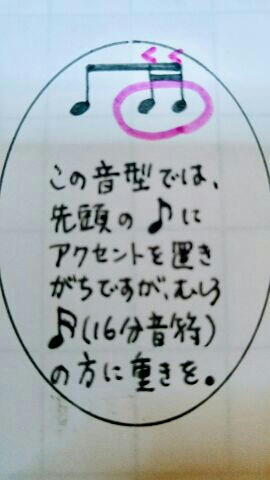 この音型では、
先頭の♪に
アクセントを置き
がちですが、むしろ
♬(16分音符)
の方に重きを。